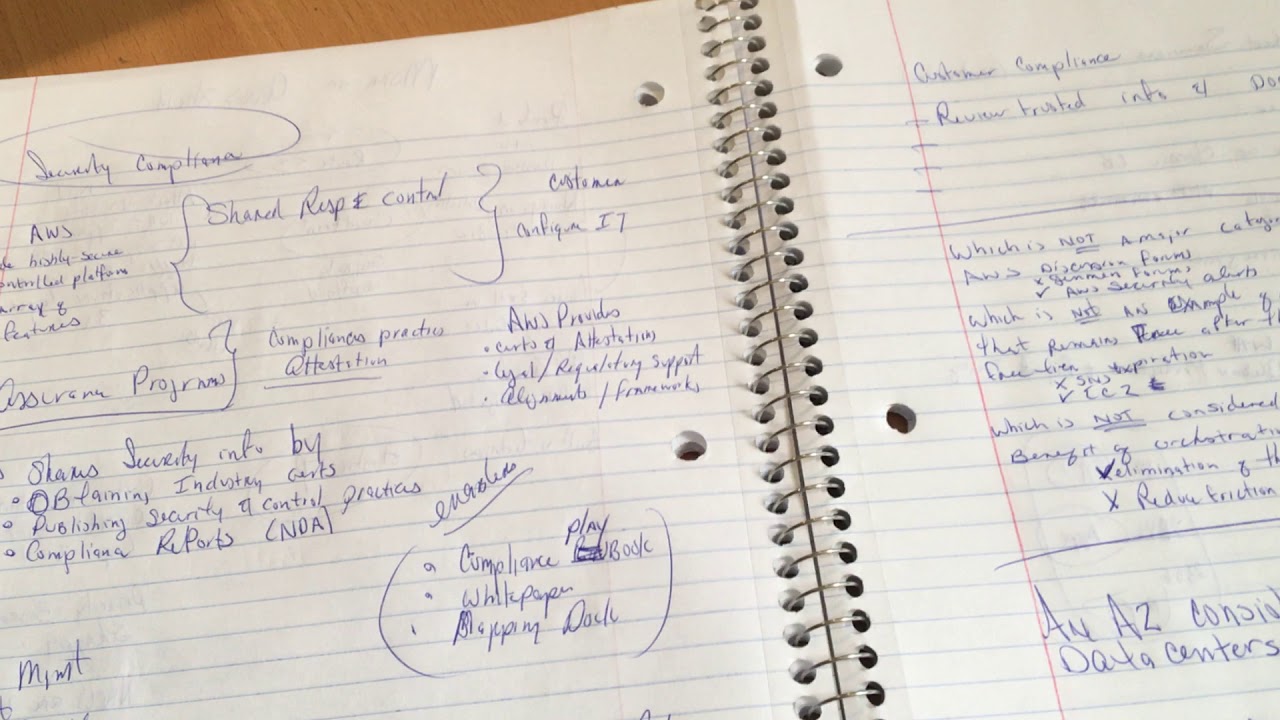 Security Compliance
AWS
highly-secure
controlled platform
array of
features
Shared Resp & control
Customer
Configure IT
Assurance Programs
Compliances practices
Attestation
AWS Provides
• Certs & Attestations
• Legal/Regulatory Support
• Alignments/Frameworks
Shares Security info by
• OBtaining Industry certs
• Publishing Security & control practices
• Compliance Reports (NDA)
enablers
• Compliance play Book
• Whitepaper
• Mapping Docs
Mgmt
Customer Compliance
- Review trusted info &
Which is NOT A major
AWS Discussion Forums
X Forums
✓ AWS Security alerts
Which is NOT AN Example of
that remains Free after
free tier expiration
X SNS
✓ EC2
Which is NOT considered
Benefit of orchestration
✓ elimination of
X Reduce friction
An AZ
Data centers